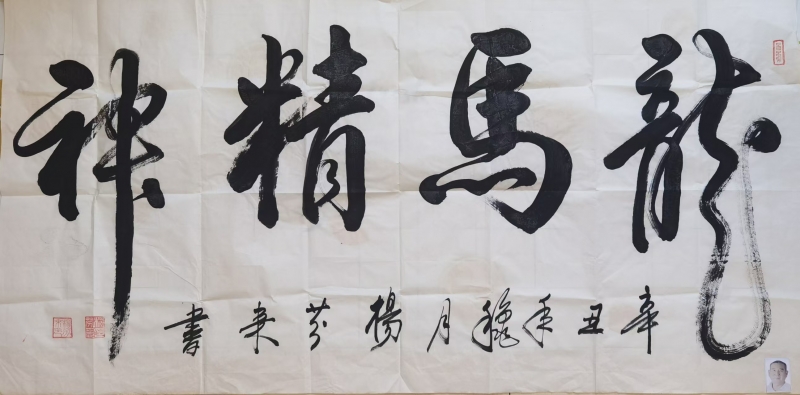 龍馬精神
辛丑年穐月楊芬来書